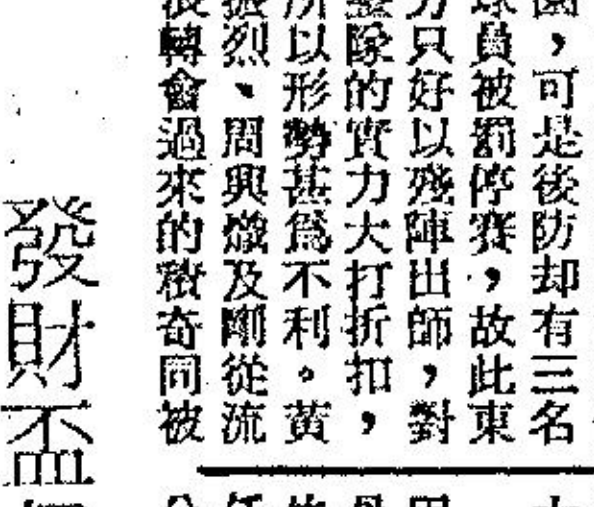 ，可是後防却有三名
員被罰停賽，故此東
只好以殘陣出師，對
隊的實力大打折扣，
以形勢甚為不利。黃
烈、周興熾及剛從流
轉會過來的積奇同被
發財盃